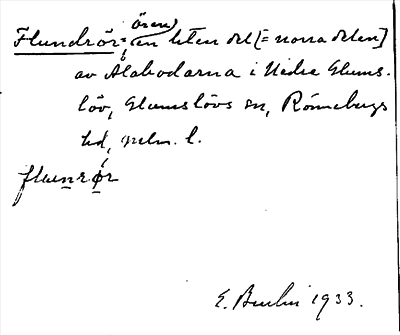 ören)
Flundrör = en liten del [= norra delen]
av Ålabodarna i Nedre Glums-
löv, Glumslövs sn, Rönnebergs
hd, mlm. l.
flunrør
E. Berlin 1933.